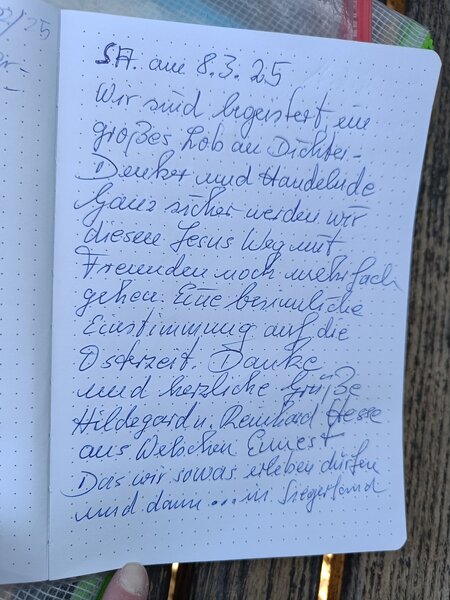 02/25
SA. am 8.3.25
Wir sind begeistert, ein
großes Lob an Dichter-
Denker und Handelnde
Ganz sicher werden wir
diesen Jesus Weg mit
Freunden noch mehrfach
gehen. Eine besinnliche
Einstimmung auf die
Osterzeit. Danke
und herzliche Grüße
Hildegard u. Reinhard Hesse
aus Welschen Ennest
Das wir sowas erleben dürfen
und dann ... in Siegerland